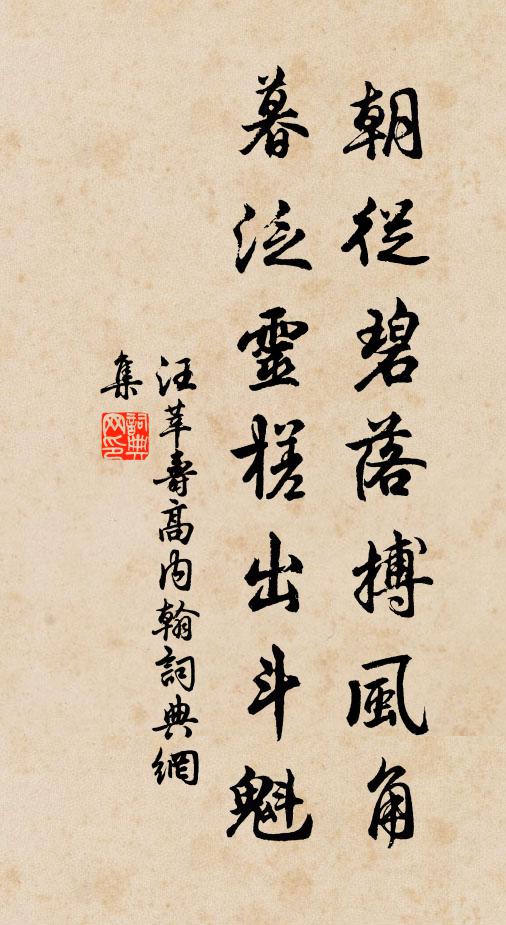 朝從碧落搏風角
暮泛靈槎出斗魁
汪莘壽高內翰詞典網
集
詞典網印